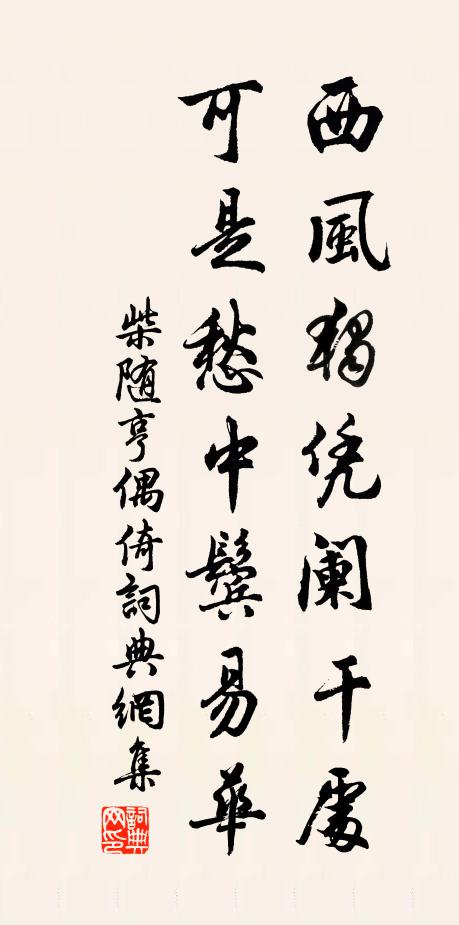 西風獨凭阑干處
可是愁中鬓易華
柴随亨偶倚詞典網集
詞典
网印